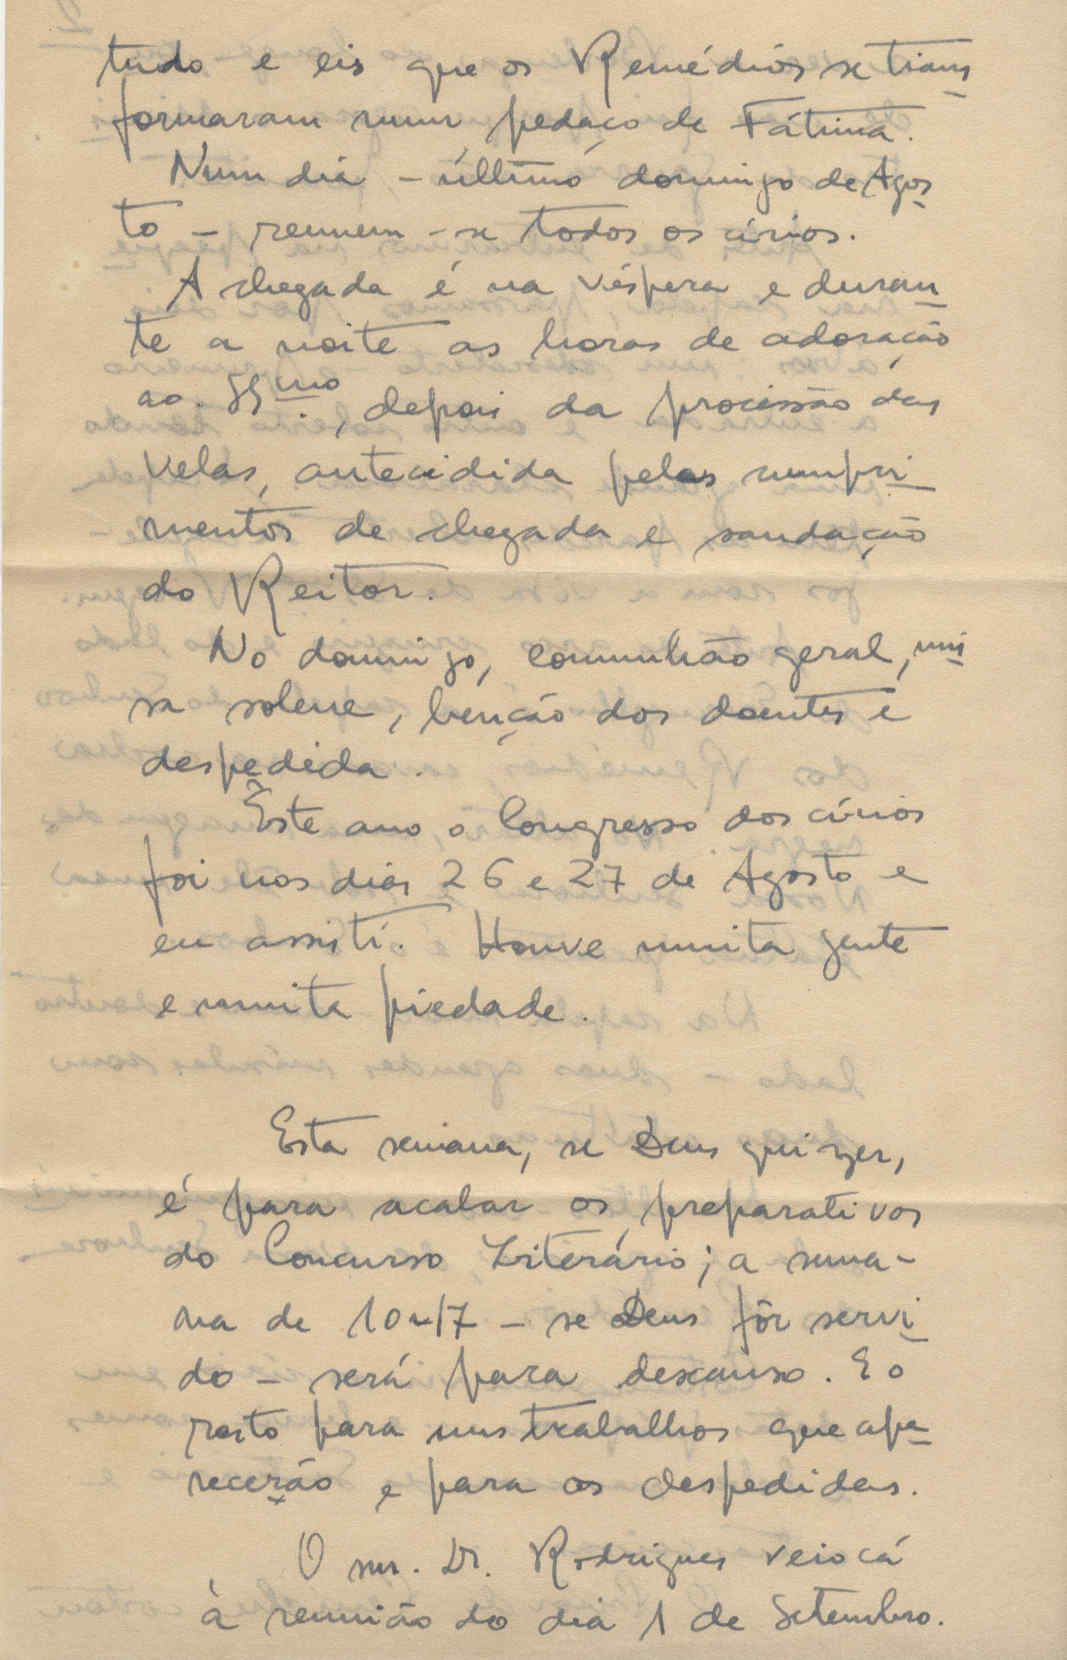 tudo e eis que os Remédios se trans
formaram num pedaço de Fátima.
Num dia - último domingo de Agos
to - reunem-se todos os círios.
A chegada é na véspera e duran
te a noite as horas de adoração
ao SSmo., depois da procissão das
velas, antecidida pelos cumpri
mentos de chegada e saudação
do Reitor.
No domingo, comunhão geral, mis
sa solene, benção dos doentes e
despedida.
Êste ano o Congresso dos círios
foi nos dias 26 e 27 de Agosto e
eu assisti. Houve muita gente
e muita piedade.
Esta semana, se Deus quizer,
é para acabar os preparativos
do Concurso Literário; a sema-
na de 10 a 17 - se Deus fôr servi
do - será para descanso. E o
resto para uns trabalhos que apa
recerão e para as despedidas.
O snr. Dr. Rodrigues veio cá
à reunião do dia 1 de Setembro.